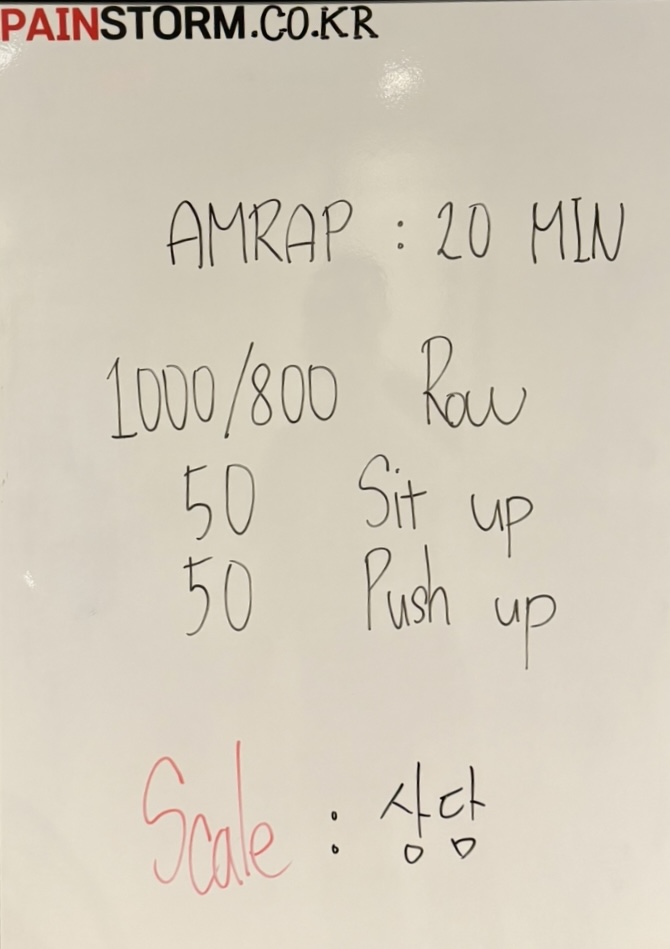 PAINSTORM.CO.KR
AMRAP : 20 MIN
1000/800 Row
50 Sit up
50 Push up
Scale : 상담